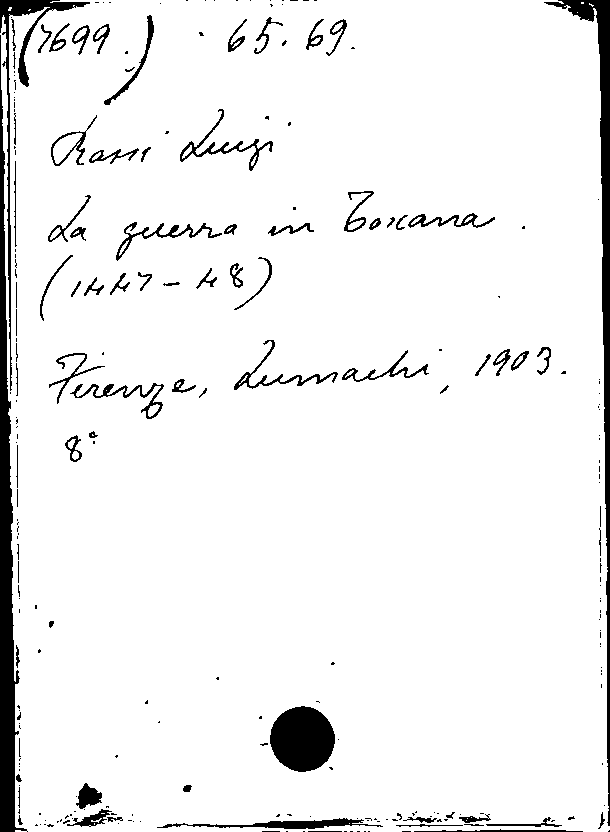 (7699.) · 65. 69.
Rossi Luigi
La guerra in Toscana.
(1447-48)
Firenze, Lumachi, 1903.
8°